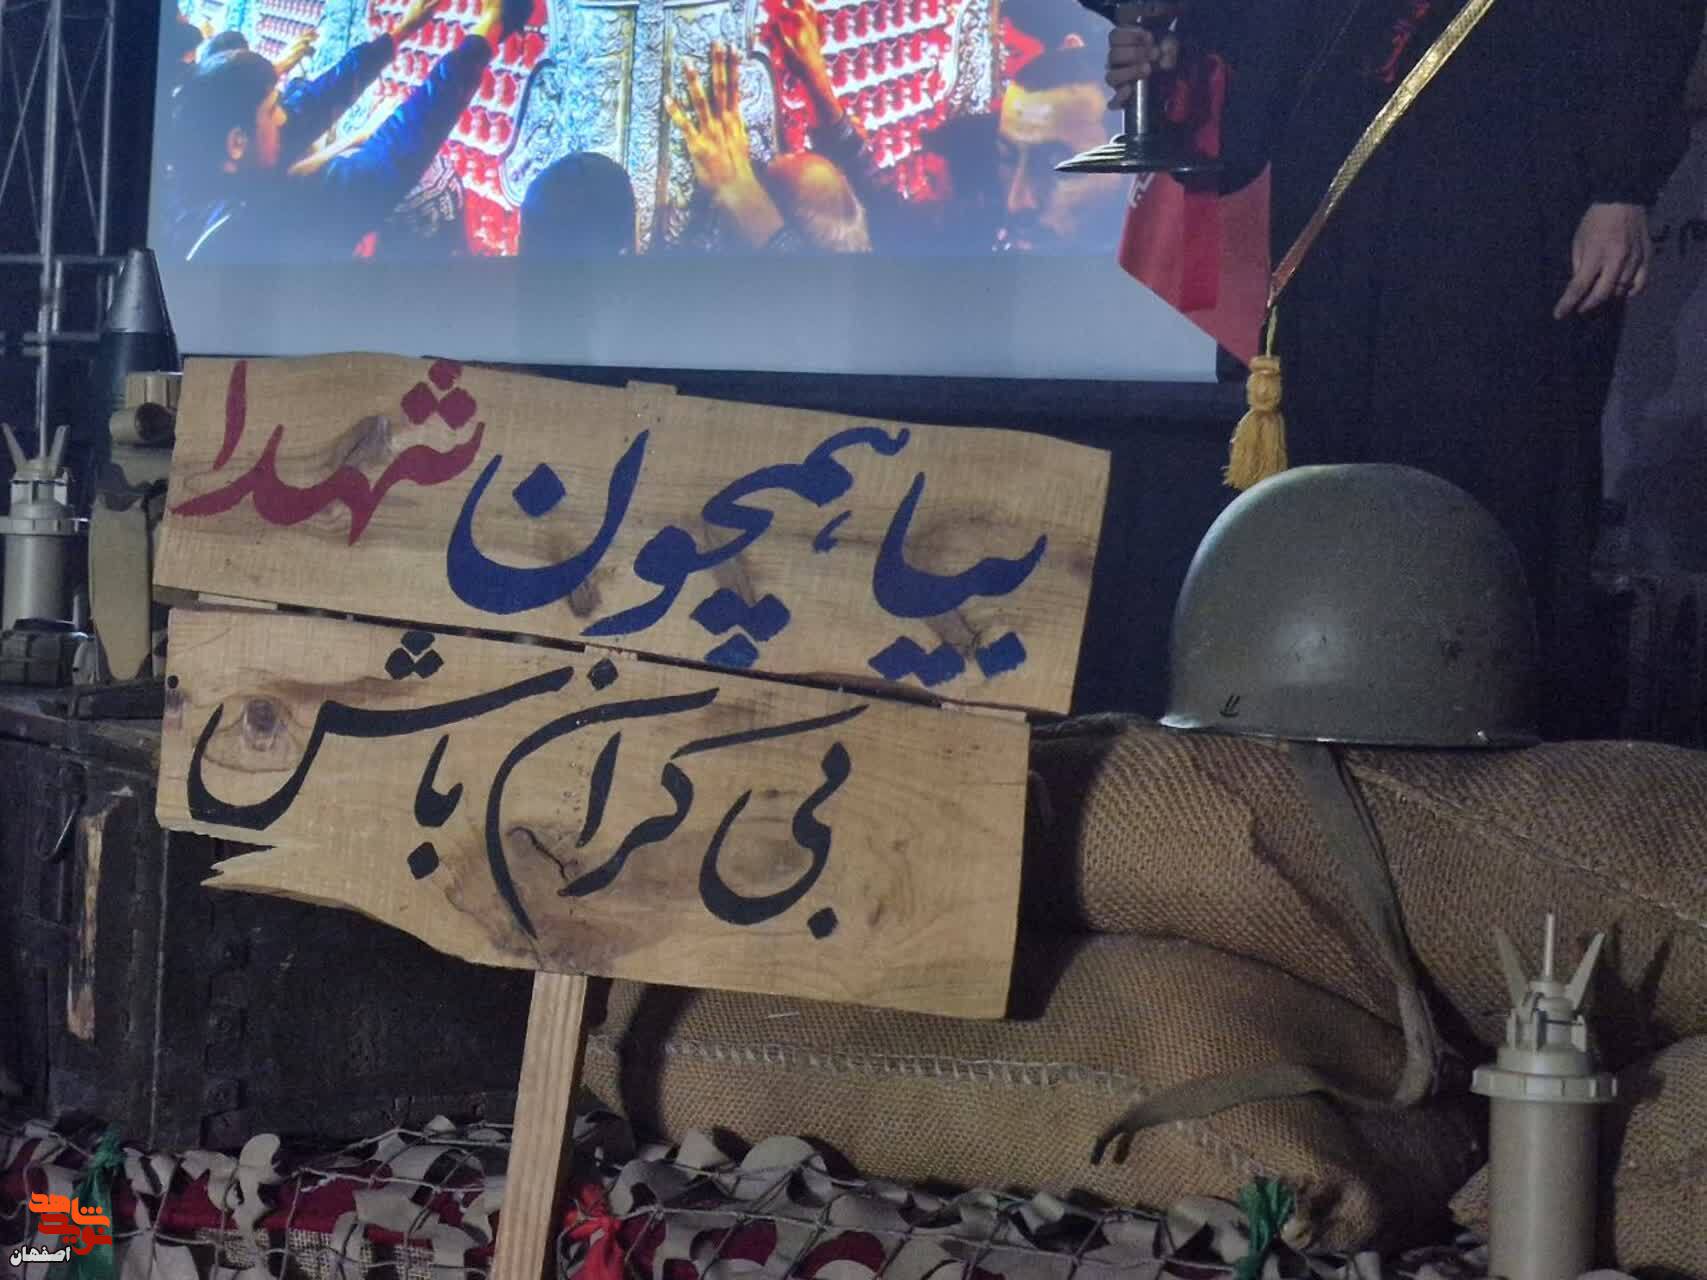 بیا همچون شهدا
بی کران باش
نوید شاهد
اصفهان